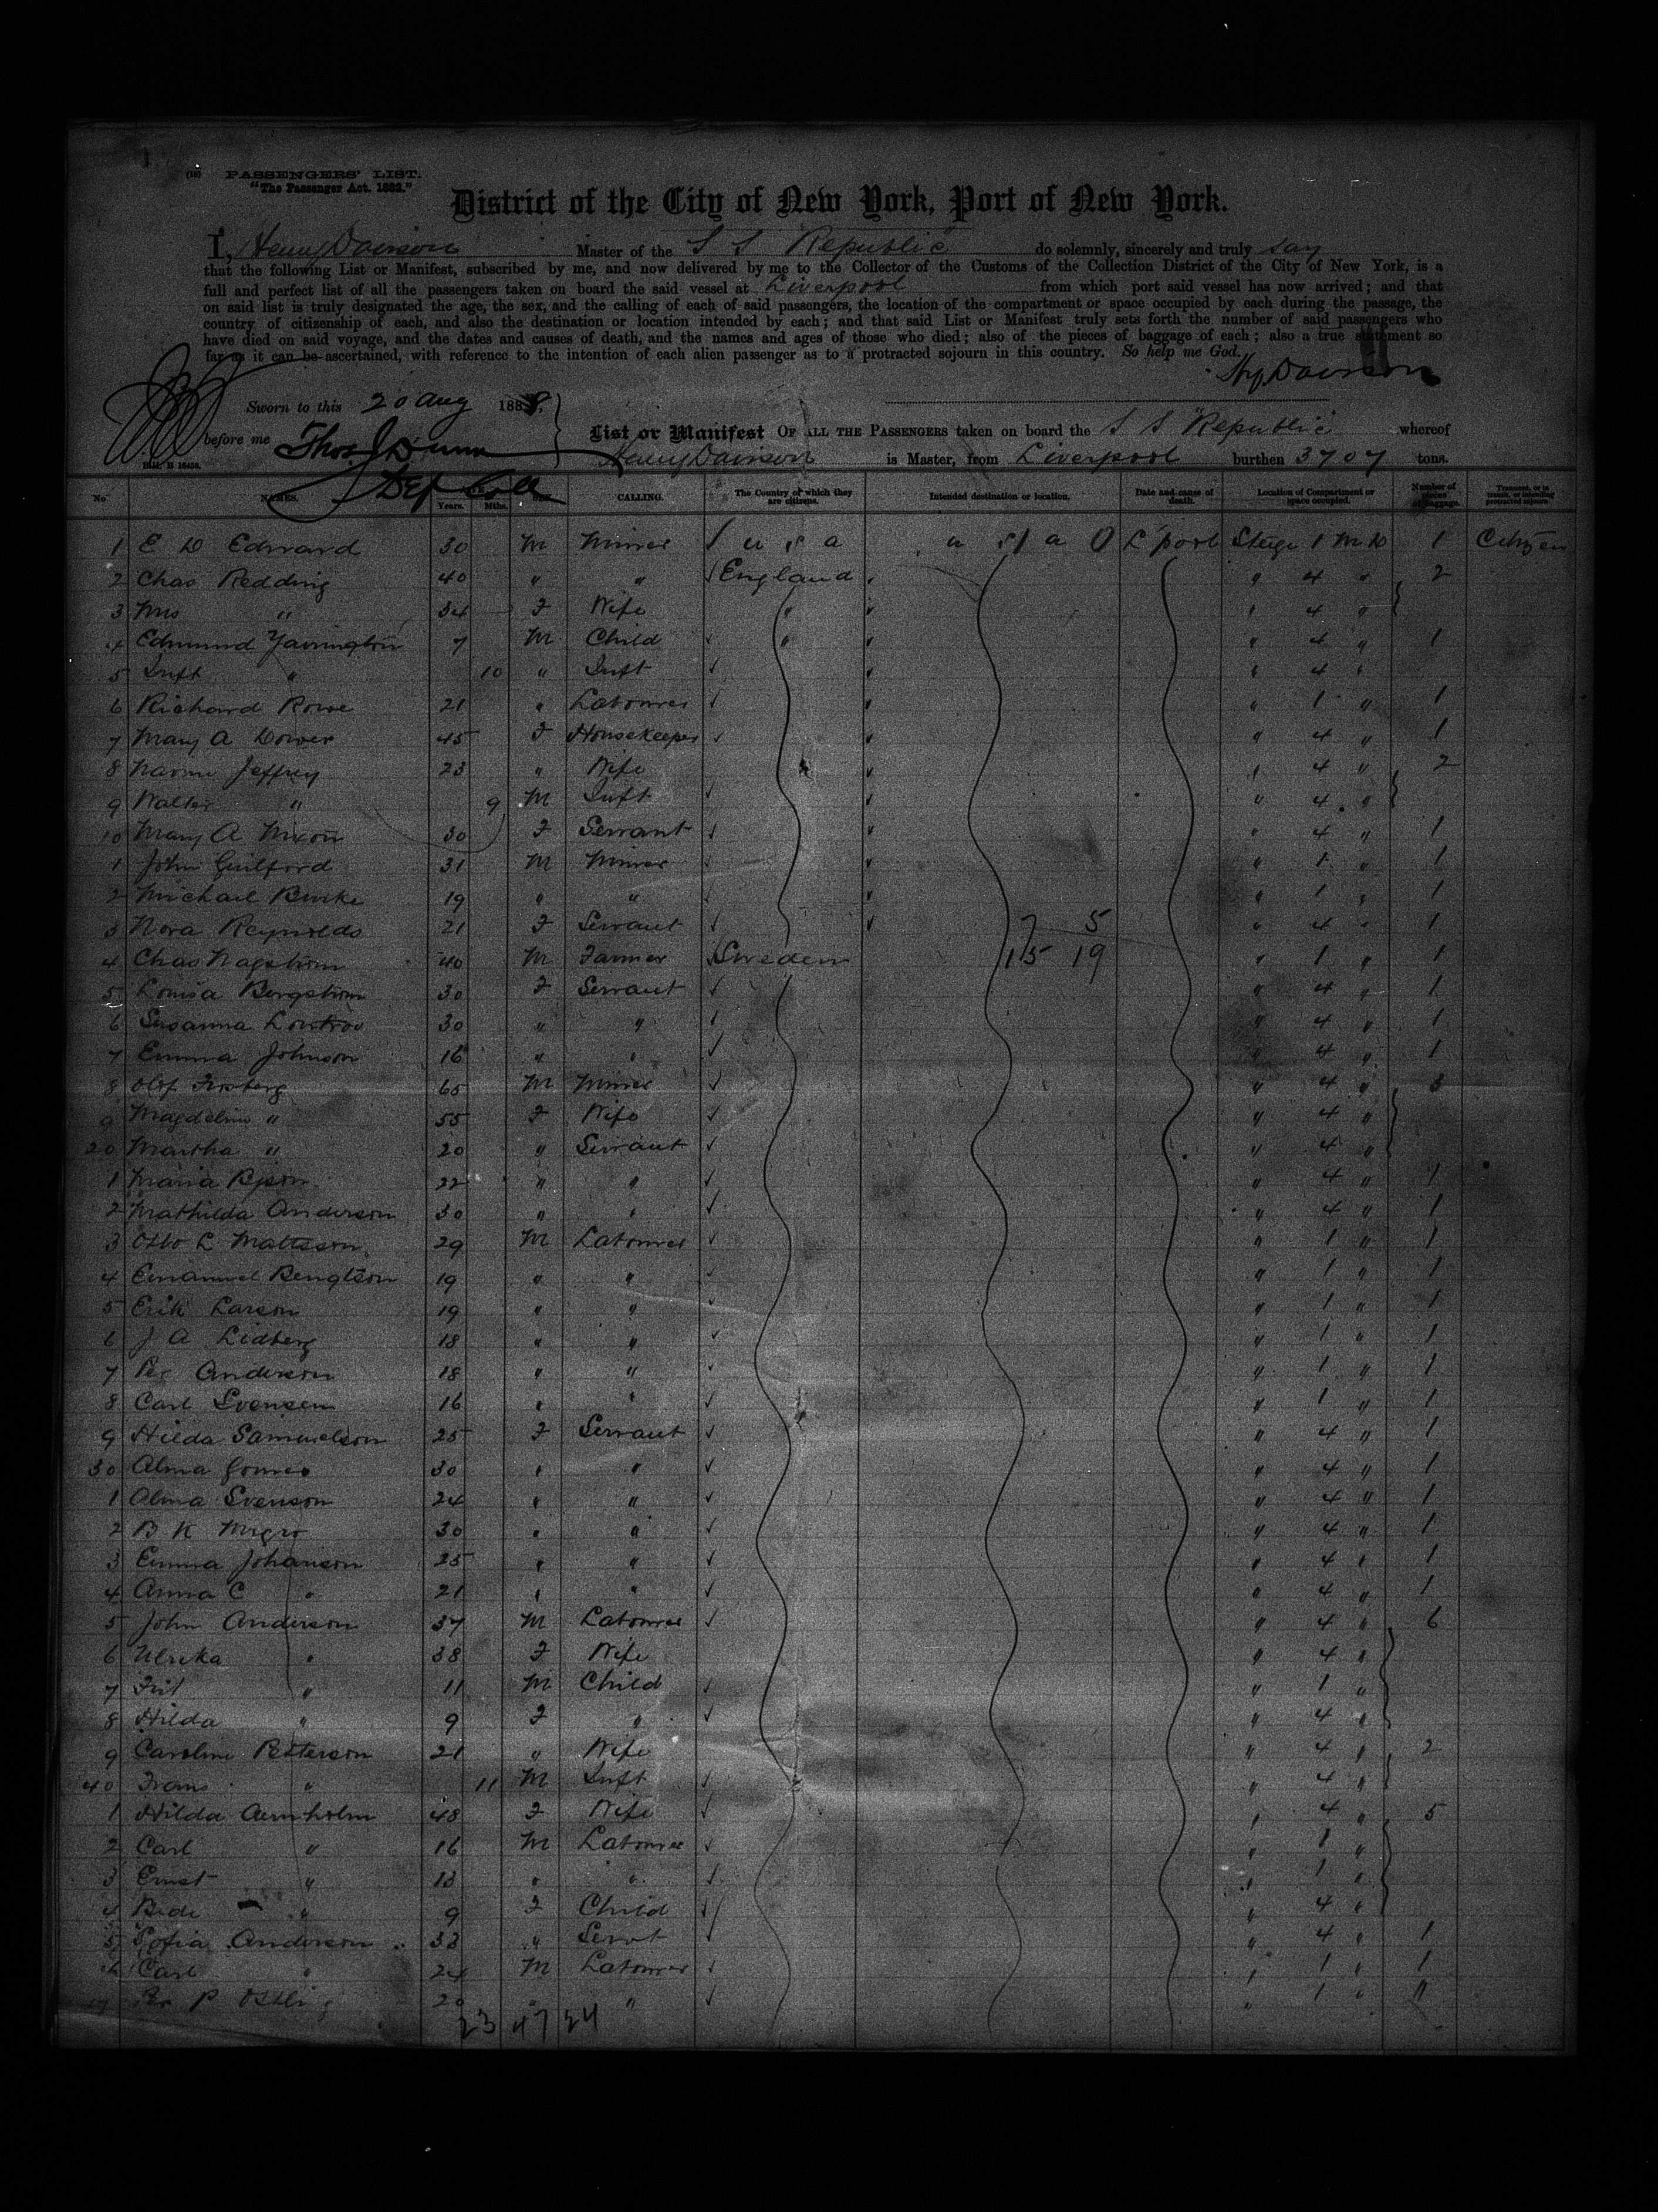 (10) PASSENGERS' LIST.
"The Passenger Act. 1882."
District of the City of New York, Port of New York.
I, Henry Davison Master of the S S "Republic" do solemnly, sincerely and truly say
that the following List or Manifest, subscribed by me, and now delivered by me to the Collector of the Customs of the Collection District of the City of New York, is a
full and perfect list of all the passengers taken on board the said vessel at Liverpool from which port said vessel has now arrived; and that
on said list is truly designated the age, the sex, and the calling of each of said passengers, the location of the compartment or space occupied by each during the passage, the
country of citizenship of each, and also the destination or location intended by each; and that said List or Manifest truly sets forth the number of said passengers who
have died on said voyage, and the dates and causes of death, and the names and ages of those who died; also of the pieces of baggage of each; also a true statement so
far as it can be ascertained, with reference to the intention of each alien passenger as to a protracted sojourn in this country. So help me God.
Hy Davison
Sworn to this 20 Aug 1888,
before me Thos J Dunn
Dep Coll
List or Manifest OF ALL THE PASSENGERS taken on board the S S "Republic" whereof
Henry Davison is Master, from Liverpool burthen 3707 tons.
No. NAMES. Years. Mths. SEX. CALLING. The Country of which they are citizens. Intended destination or location. Date and cause of death. Location of Compartment or space occupied. Number of pieces of baggage. Transient, or in transit, or intending protracted sojourn
1 E D Edward 30 M Miner U S A U S A L'pool Stage 1 M D 1 Citizen
2 Chas Redding 40 " " England " 4 " 2
3 Mrs " 34 F Wife " " 4 "
4 Edmund Yarrington 7 M Child " " 4 " 1
5 Inft " 10 " Inft " 4 "
6 Richard Rowe 21 " Labourer " 1 " 1
7 Mary A Dower 45 F Housekeeper " 4 " 1
8 Naomi Jeffrey 23 " Wife " 4 " 2
9 Walter " 9 M Inft " 4 "
10 Mary A Nixon 30 F Servant " 4 " 1
1 John Guilford 31 M Miner " 1 " 1
2 Michael Burke 19 " " " 1 " 1
3 Nora Reynolds 21 F Servant 5 " 4 " 1
4 Chas Nagstrom 40 M Farmer Sweden 15 19 " 1 " 1
5 Louisa Bergstrom 30 F Servant " 4 " 1
6 Susanna 30 " " " 4 " 1
7 Emma Johnson 16 " " " 4 " 1
8 Olof 65 M Miner " 4 " 3
9 Magdelina " 55 F Wife " 4 "
20 Martha " 20 " Servant " 4 "
1 Maria 22 " " " 4 " 1
2 Mathilda Anderson 30 " " " 4 " 1
3 Otto L Mattsson 29 M Labourer " 1 " 1
4 Emanuel Bengtson 19 " " " 1 " 1
5 Erik Larson 19 " " " 1 " 1
6 J A Lidberg 18 " " " 1 " 1
7 Per Anderson 18 " " " 1 " 1
8 Carl Svensen 16 " " " 1 " 1
9 Hilda Samuelson 25 F Servant " 4 " 1
30 Alma 30 " " " 4 " 1
1 Alma Svenson 24 " " " 4 " 1
2 B K 30 " " " 4 " 1
3 Emma Johanson 25 " " " 4 " 1
4 Anna C " 21 " " " 4 " 1
5 John Anderson 37 M Labourer " 4 " 6
6 Ulrika " 38 F Wife " 4 "
7 " 11 M Child " 1 "
8 Hilda " 9 F " " 4 "
9 Caroline Petterson 21 " Wife " 4 " 2
40 Frans " 11 M Inft " 4 "
1 Hilda 48 F Wife " 4 " 5
2 Carl " 16 M Labourer " 1 "
3 Ernst " 13 " " " 1 "
4 " 9 F Child " 4 "
5 Sofia Anderson 33 " Servt " 4 " 1
6 Carl " 24 M Labourer " 1 " 1
47 Per P 20 " " " 1 " "
23 47 24